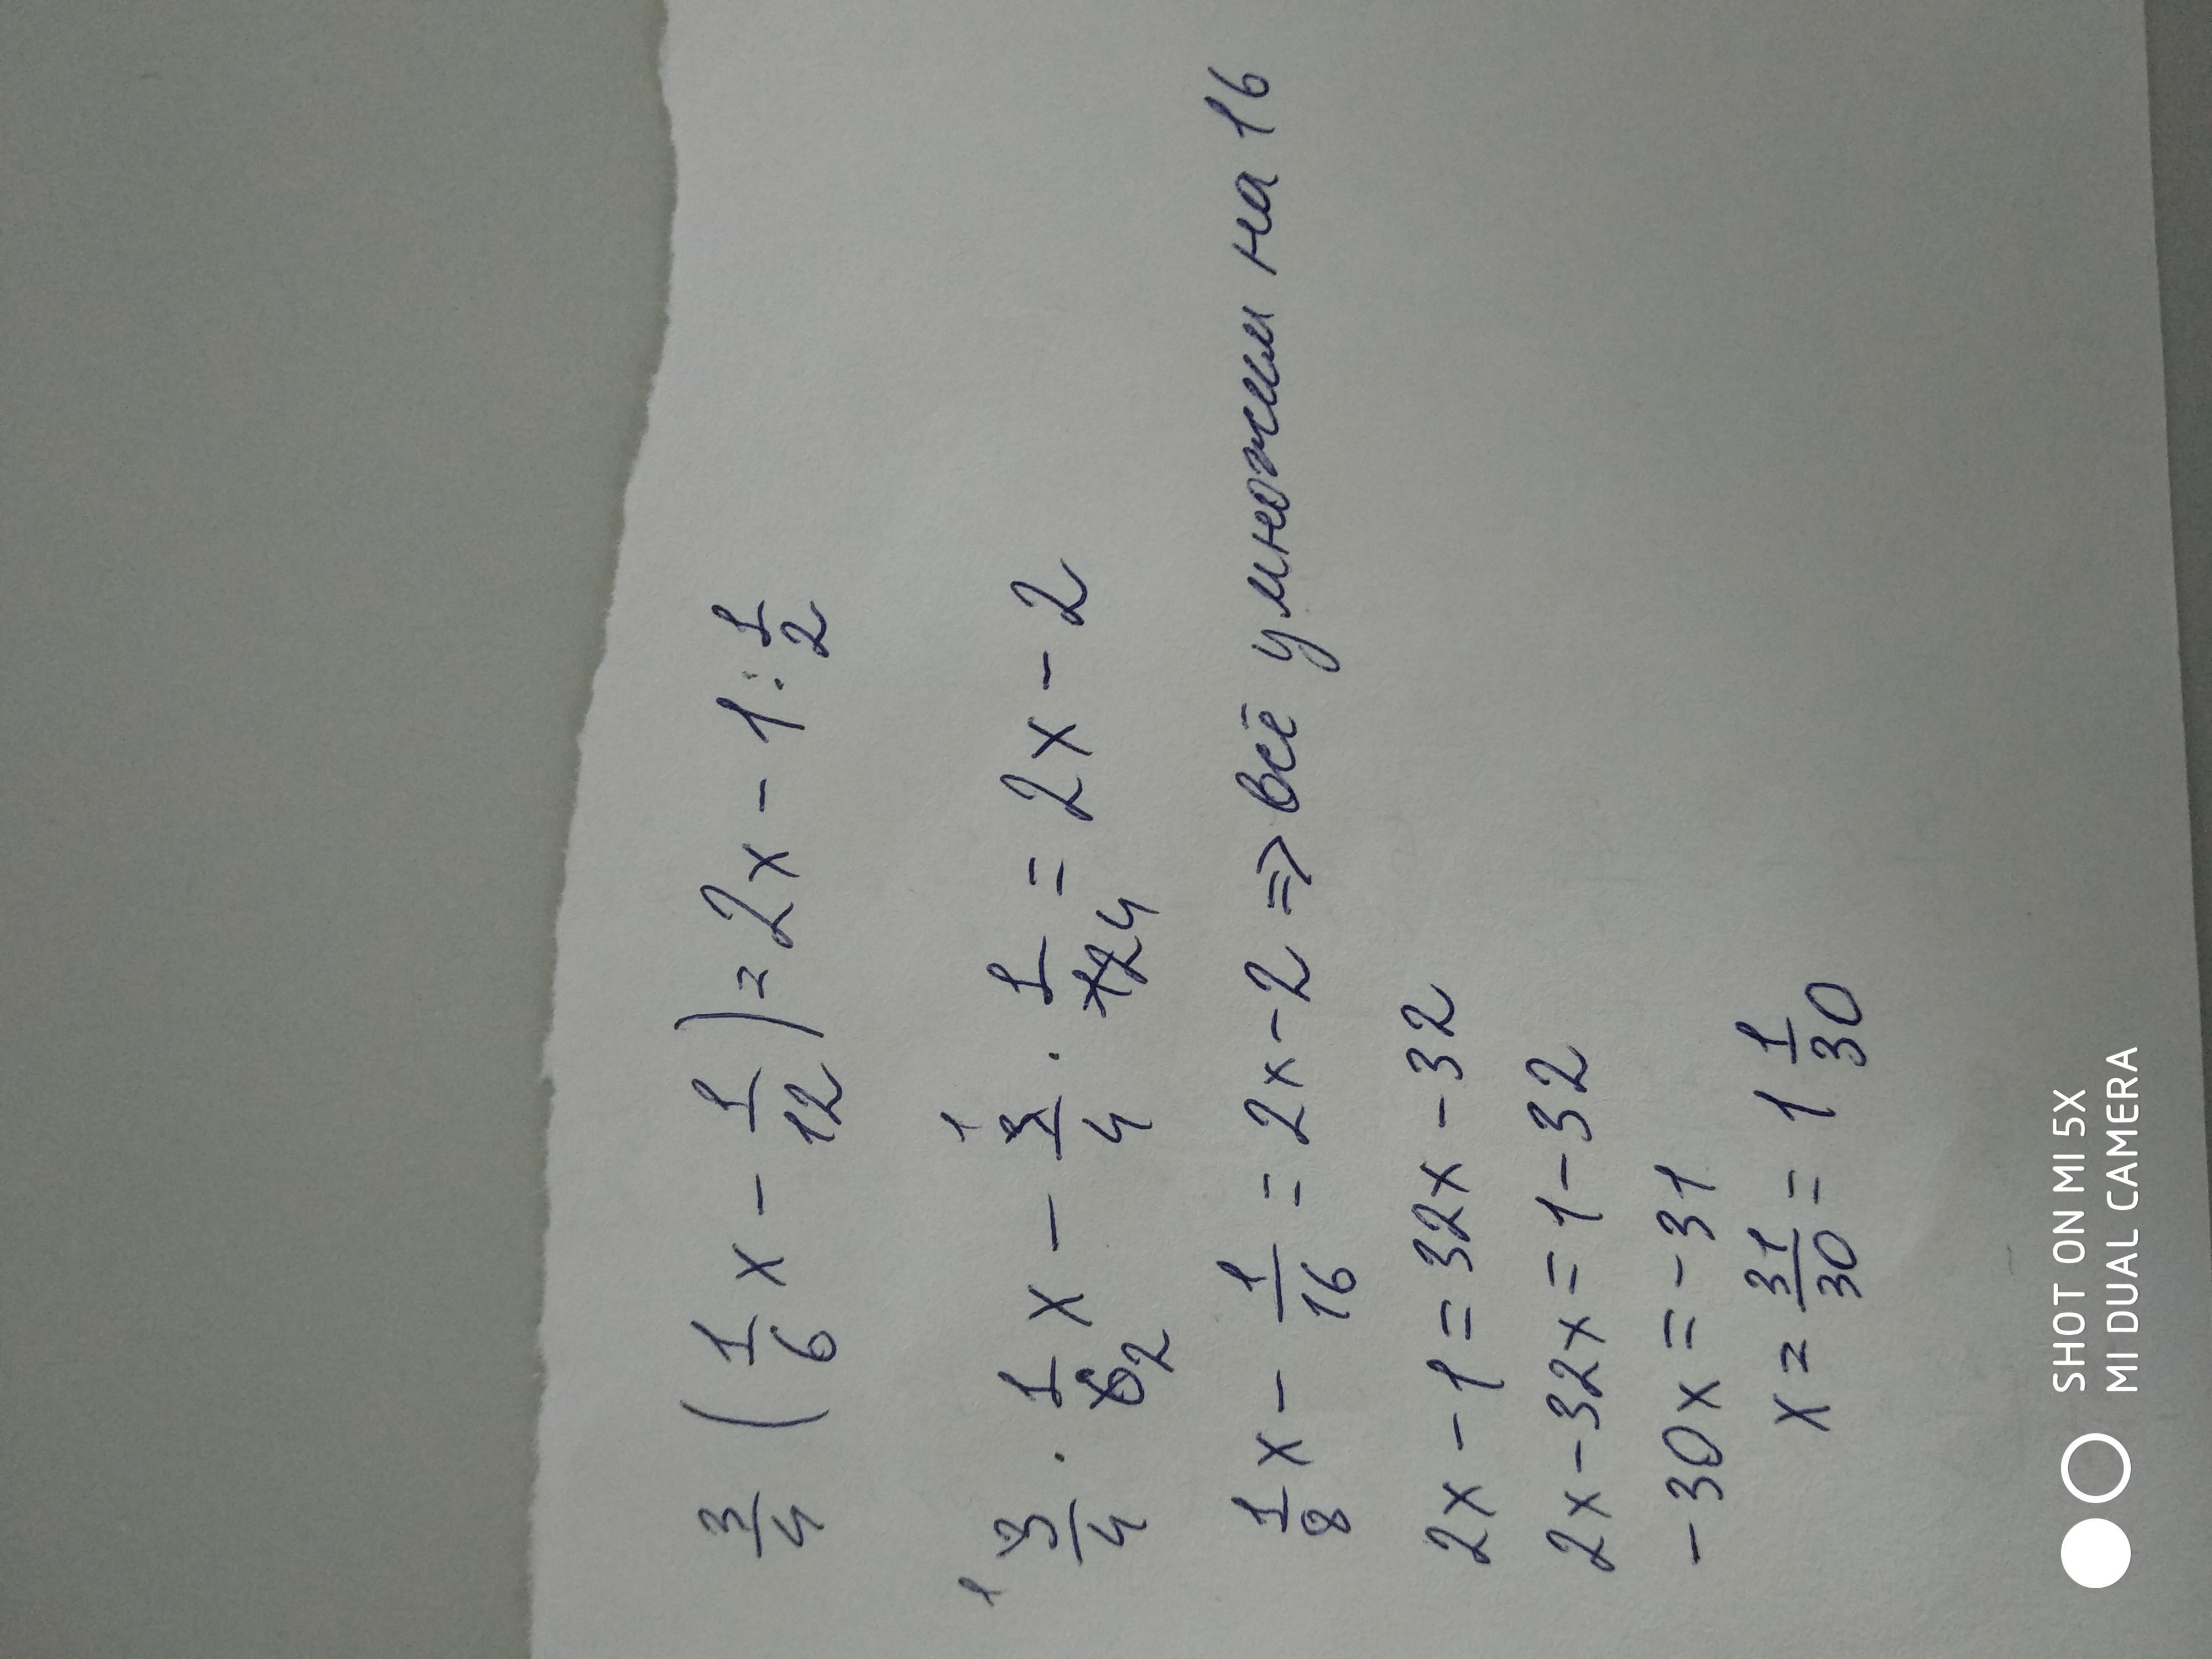 3/4 (1/6 x - 1/12) = 2x - 1 : 1/2
3/4 · 1/6 x - 3/4 · 1/12 = 2x - 2
1/8 x - 1/16 = 2x - 2 => всё умножим на 16
2x - 1 = 32x - 32
2x - 32x = 1 - 32
-30x = -31
x = 31/30 = 1 1/30
SHOT ON MI 5X
MI DUAL CAMERA